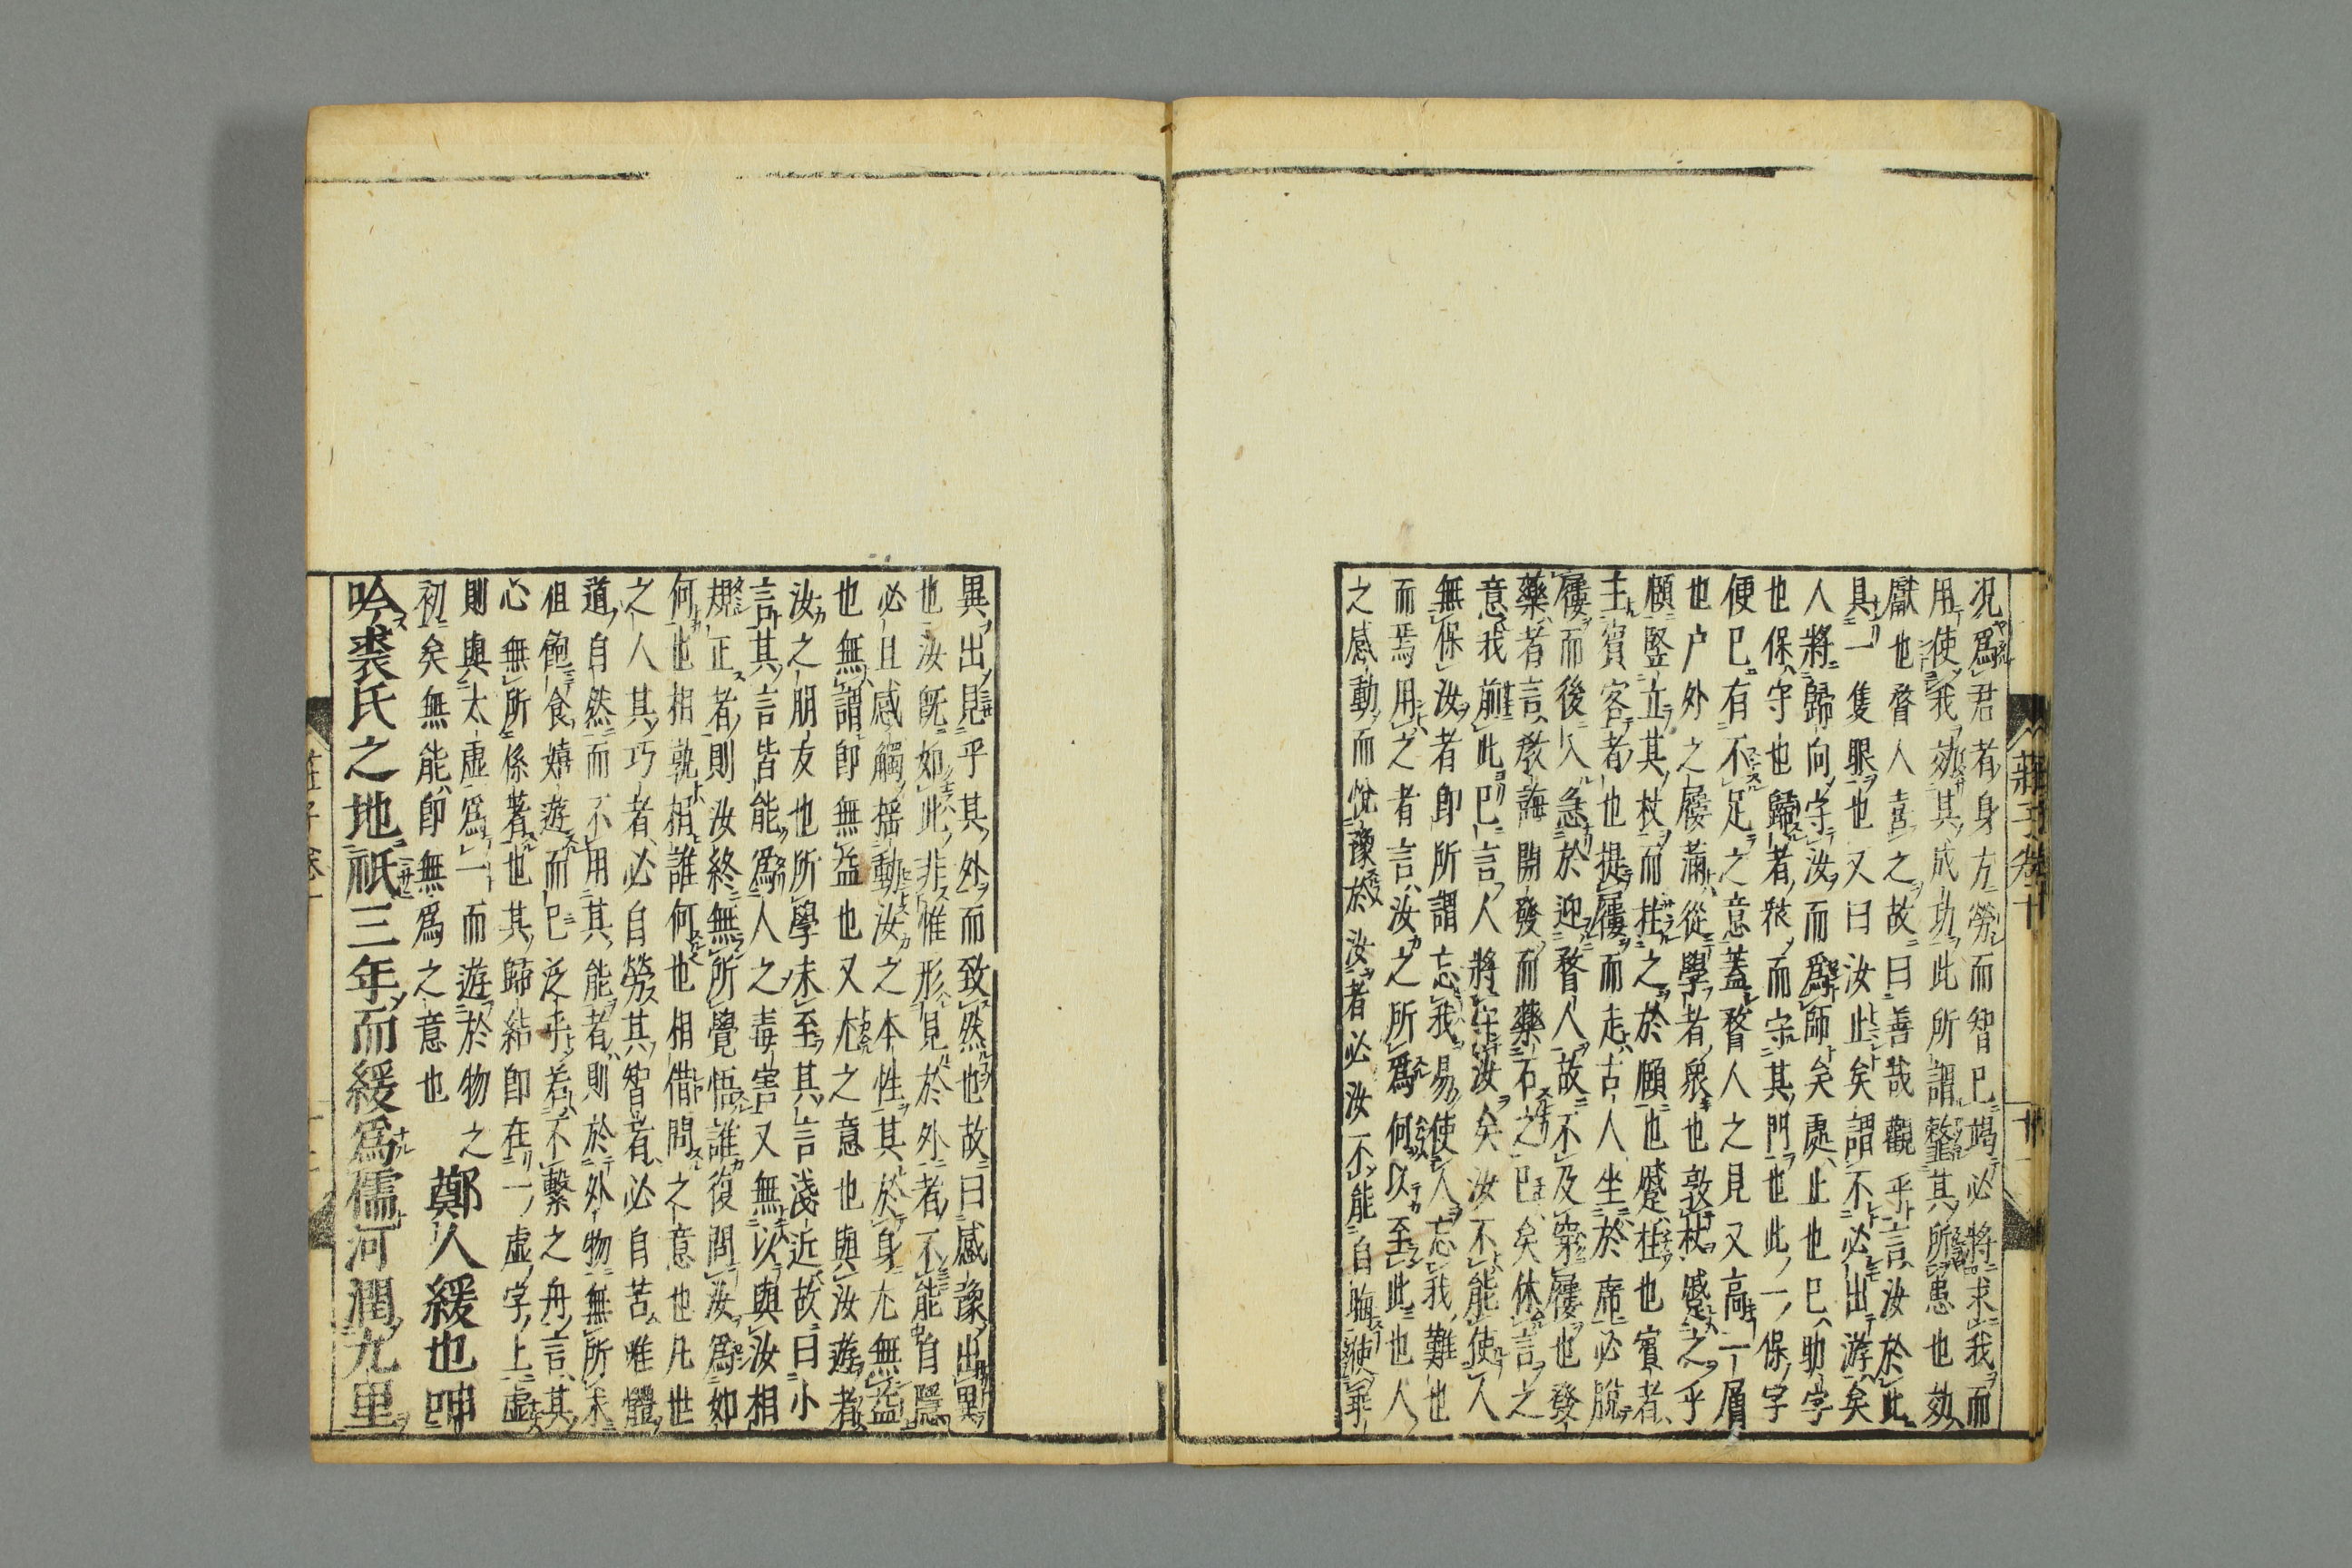 況爲君者身方勞而智已竭必將求我而
用使我効其成功此所謂螯其所患也効
獻也瞀人喜之故曰善哉觀乎言汝於此
具一隻眼也又曰汝止矣謂不必出游矣
人將歸向守汝而爲師矣處止也已助字
也保守也歸者衆而守其門也此一保字
便已有不足之意蓋瞀人之見又高一層
也户外之屨滿從學者衆也敦杖蹙之乎
頤豎立其杖而拄之於頤也蹙拄也賓者
主賓客者也提屨而走古人坐於席必脫
屨而後入急於迎瞀人故不及穿屨也發
藥者言教誨開發而藥石之已矣休言之
意我前此已言人將守汝矣汝不能使人
無保汝者即所謂忘我易使人忘我難也
而焉用之者言汝之所爲何以至此也人
之感動而悅豫於汝者必汝不能自晦使平
莊子卷十 十一
異出見乎其外而致然也故曰感豫出異
也汝既如此非惟形見於外者不能自隱
必且感觸搖動汝之本性其於身尤無益
也無謂即無益也又尤之意也與汝遊者
汝之朋友也所學未至其言淺近故曰小
言其言皆能爲人之毒害又無以與汝相
規正者則汝終無所覺悟誰復問汝爲如
何也相孰相誰何也相借問之意也凡世
之人其巧者必自勞其智者必自苦唯體
道自然而不用其能者則於外物無所求
但飽食嬉遊而已泛乎若不繫之舟言其
心無所係著也其歸結即在一虛字上虛
則與太虛爲一而遊於物之
初矣無能即無爲之意也 鄭人緩也呻
吟裘氏之地祇三年而緩爲儒河潤九里